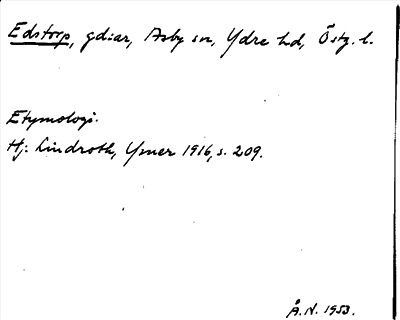 Edstorp, gdar, Asby sn, Ydre hd, Östg. l.
Etymologi.
Hj: Lindroth, Ymer 1916, s. 209.
Å.N. 1953.